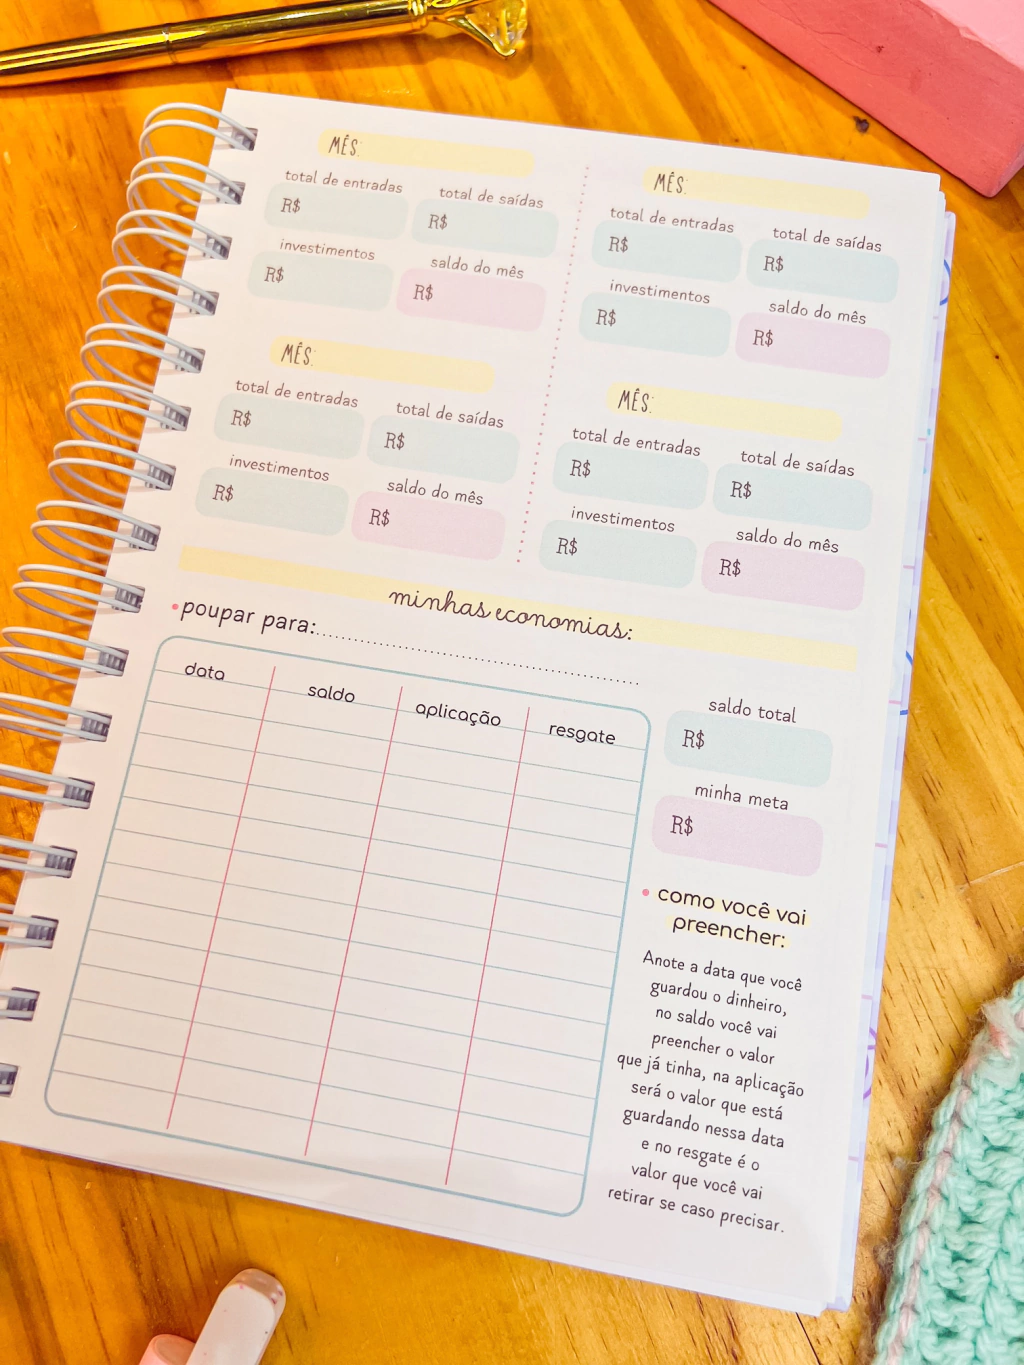 MÊS:
total de entradas total de saídas
R$ R$
investimentos saldo do mês
R$ R$
MÊS:
total de entradas total de saídas
R$ R$
investimentos saldo do mês
R$ R$
MÊS:
total de entradas total de saídas
R$ R$
investimentos saldo do mês
R$ R$
MÊS:
total de entradas total de saídas
R$ R$
investimentos saldo do mês
R$ R$
minhas economias:
poupar para:
data saldo aplicação resgate
saldo total
R$
minha meta
R$
como você vai
preencher:
Anote a data que você
guardou o dinheiro,
no saldo você vai
preencher o valor
que já tinha, na aplicação
será o valor que está
guardando nessa data
e no resgate é o
valor que você vai
retirar se caso precisar.